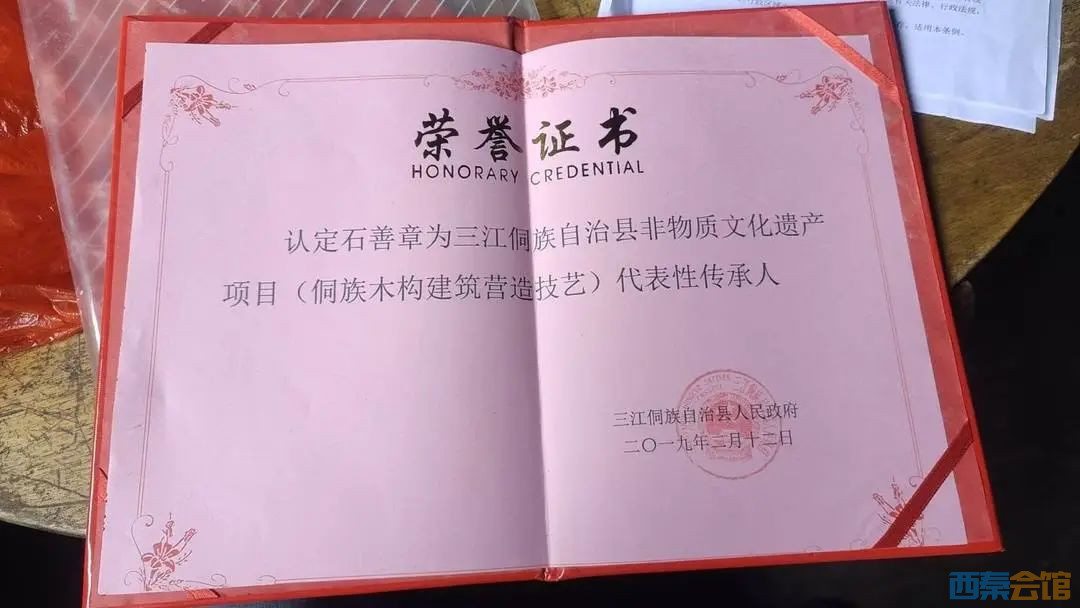 有关法律、行政法规，
适用本条例。
荣誉证书
HONORARY CREDENTIAL
认定石善章为三江侗族自治县非物质文化遗产
项目（侗族木构建筑营造技艺）代表性传承人
三江侗族自治县人民政府
二〇一九年二月十二日
西秦会馆